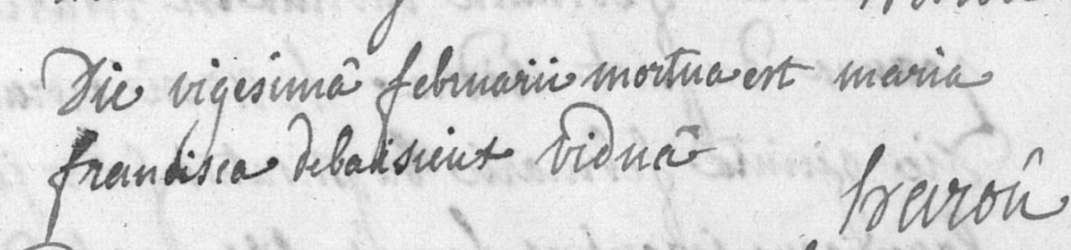 Die vigesimâ februarii mortua est maria
francisca viduâ